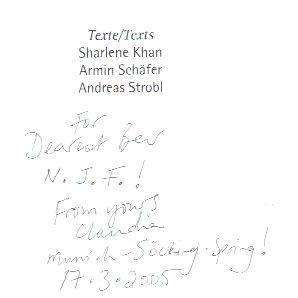 Texte/Texts
Sharlene Khan
Armin Schäfer
Andreas Strobl
For
Dearest Bev
N. J. F. !
From yours
Claudia
Munich - Söcking - Spring!
17. 3. 2005